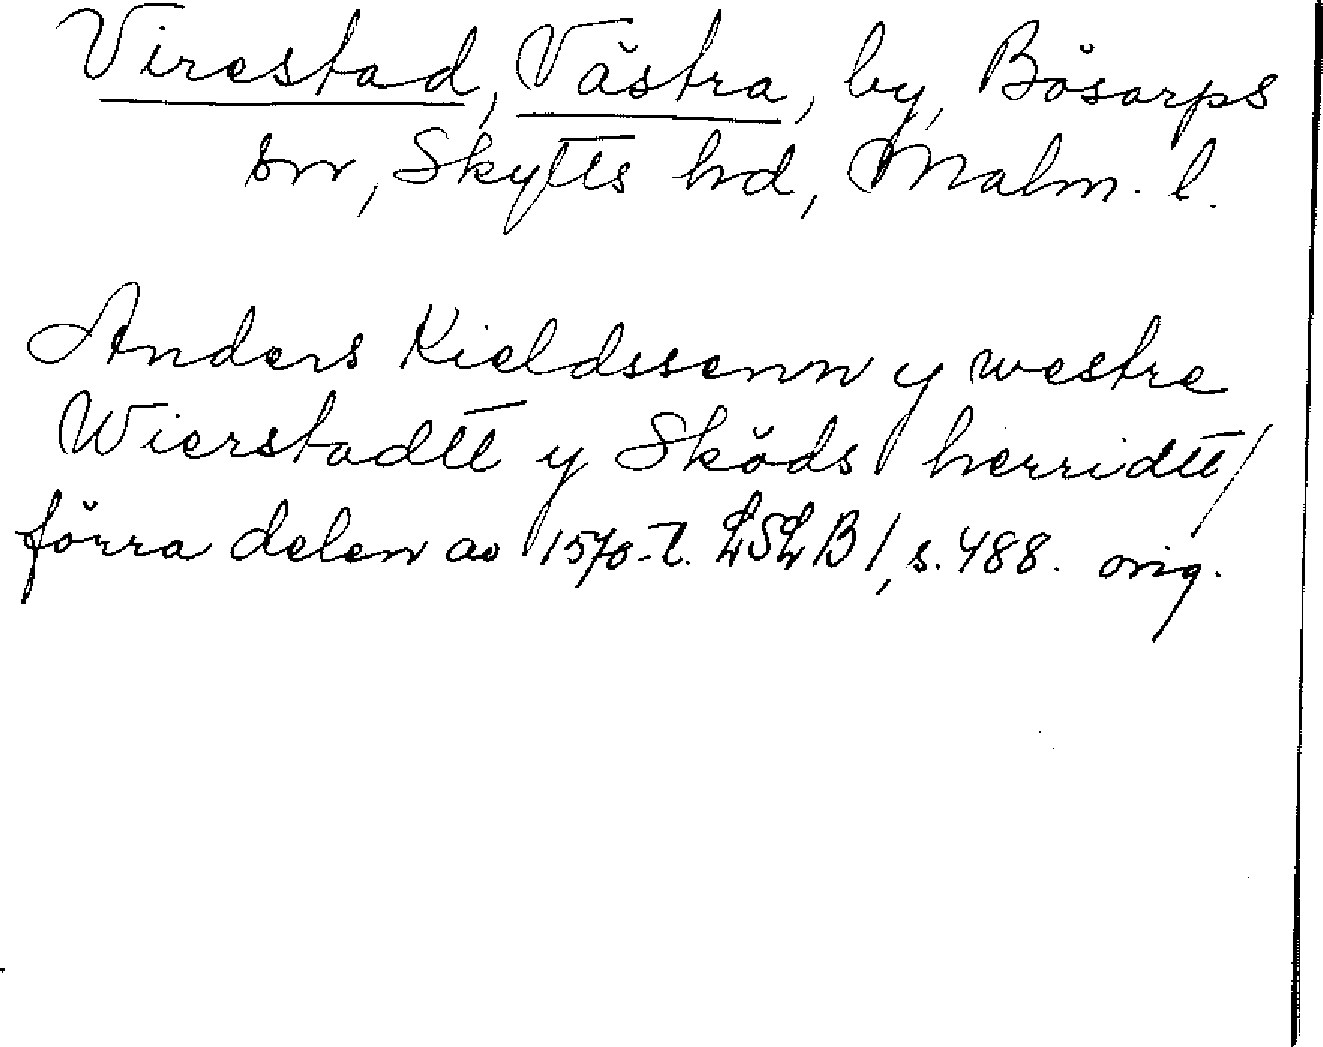 Virestad, Västra, by, Bösarps
sn, Skytts hd, Malm. l.
Anders Kieldssenn y westre
Wierstadtt y Sköds herridtt/
förra delen av 1570-t. LSLB 1, s. 488. orig.